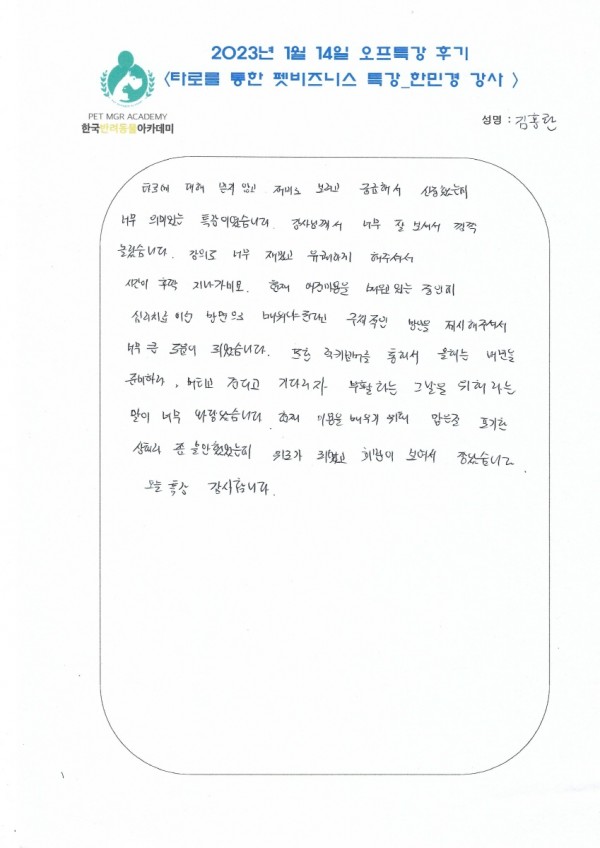 2023년 1월 14일 오프특강 후기
<타로를 통한 펫비즈니스 특강_한민경 강사 >
PET MGR ACADEMY
한국반려동물아카데미
성명 : 김홍란
타로에 대해 믿지 않고 재미로 보려고 궁금해서 신청했는데
너무 의미있는 특강이였습니다. 강사님께서 너무 잘 보셔서 깜짝
놀랐습니다. 강의도 너무 재밌고 유쾌하게 해주셔서
시간이 후딱 지나가네요. 현재 애견미용을 배우고 있는 중인데
심리치료 이런 방면으로 배워나가야한다는 구체적인 방법을 제시해주셔서
너무 큰 도움이 되었습니다. 또한 럭키넘버를 통해서 올해는 내년을
준비하라, 버티고 견디고 기다리자 부활하는 그날을 위해 라는
말이 너무 와닿았습니다. 현재 미용을 배우기 위해 많은걸 포기한
상태라 좀 불안했었는데 위로가 되었고 희망이 보여서 좋았습니다.
오늘 특강 감사합니다.